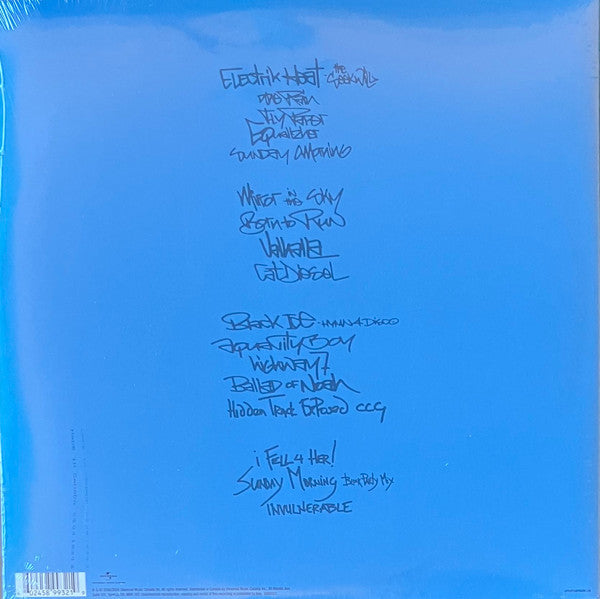 Electrik Heat - the Seekwill
the Rain
Tily Perot
Equalizher
Sunday Morning
Mirror in the Sky
Born to Run
Valhalla
Cat Diesel
Black Ice - Hymn 4 Disco
Aquacityboy
Highway 7
Ballad of Noah
Hidden Track Exposed CCG
i Fell 4 Her!
Sunday Morning Boat Party Mix
INVULNERABLE